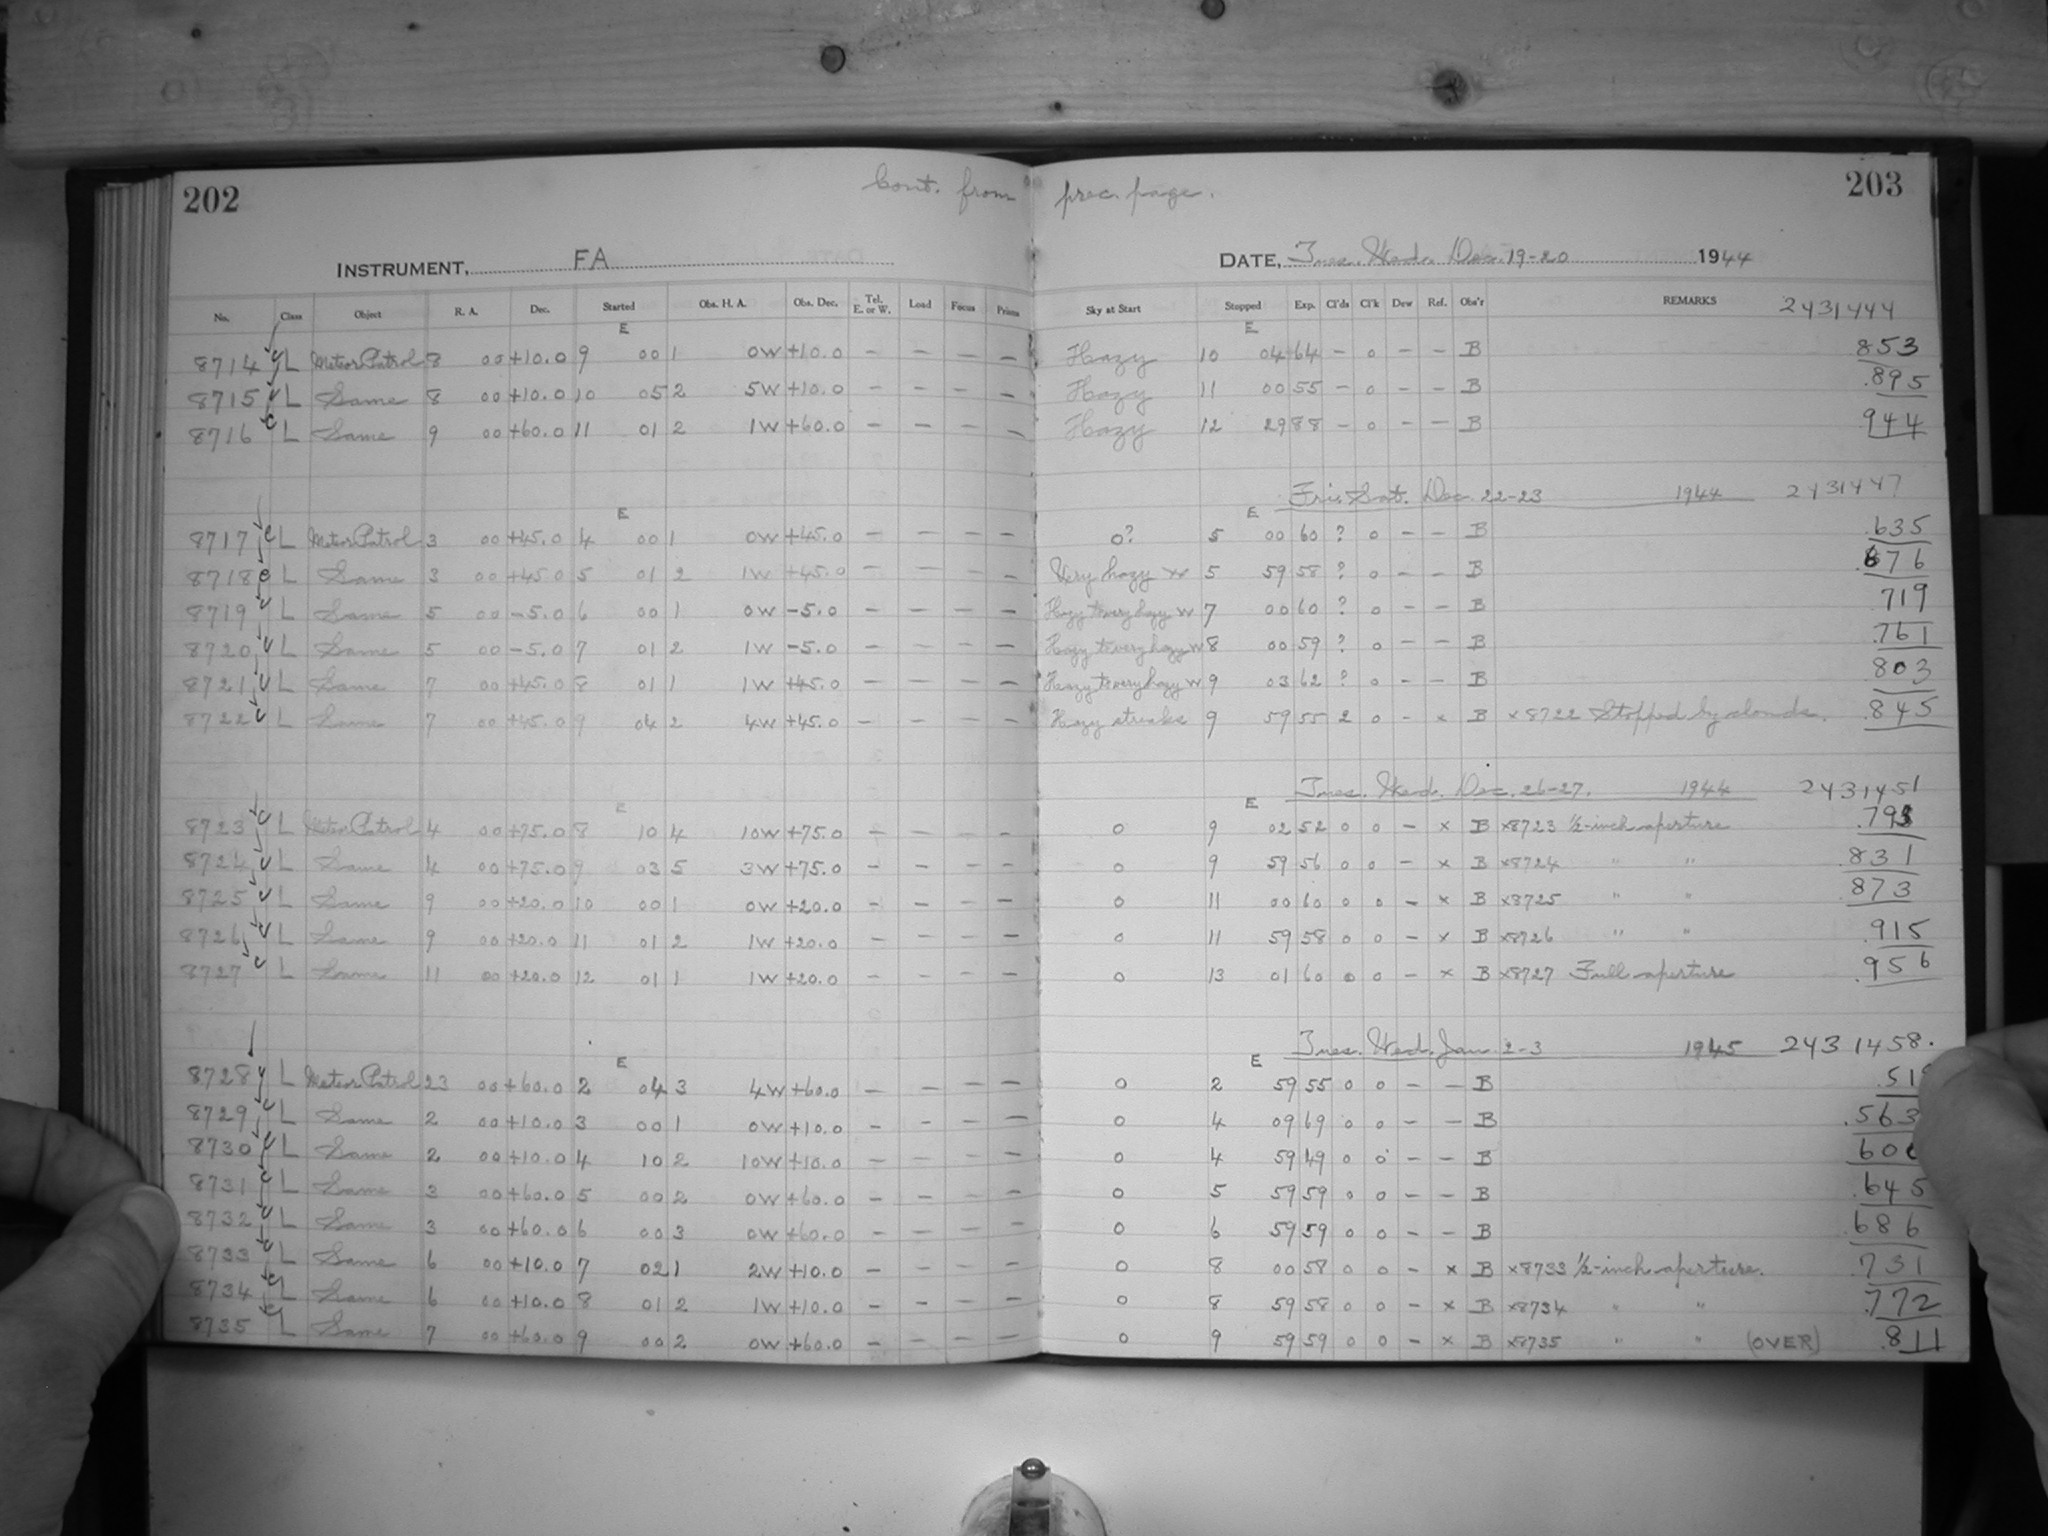 202 Cont. from prec. page. 203
INSTRUMENT, FA DATE, Tues. Wed. Dec. 19-20 1944
No. Class Object R. A. Dec. Started Obs. H. A. Obs. Dec. Tel. E. or W. Load Focus Prisms Sky at Start Stopped Exp. Cl'ds Cl'k Dew Ref. Obs'r REMARKS 2431444
E E
8714 L Meteor Patrol 8 00 +10.0 9 00 1 0W +10.0 - - - - Hazy 10 04 64 - 0 - - B 853
8715 L Same 8 00 +10.0 10 05 2 5W +10.0 - - - - Hazy 11 00 55 - 0 - - B .895
8716 L Same 9 00 +60.0 11 01 2 1W +60.0 - - - - Hazy 12 29 88 - 0 - - B 944
Fri. Sat. Dec. 22-23 1944 2431447
E E
8717 L Meteor Patrol 3 00 +45.0 4 00 1 0W +45.0 - - - - 0? 5 00 60 ? 0 - - B .635
8718 L Same 3 00 +45.0 5 01 2 1W +45.0 - - - - Very hazy W 5 59 58 ? 0 - - B .676
8719 L Same 5 00 -5.0 6 00 1 0W -5.0 - - - - Hazy to very hazy W 7 00 60 ? 0 - - B 719
8720 L Same 5 00 -5.0 7 01 2 1W -5.0 - - - - Hazy to very hazy W 8 00 59 ? 0 - - B .761
8721 L Same 7 00 +45.0 8 01 1 1W +45.0 - - - - Hazy to very hazy W 9 03 62 ? 0 - - B 803
8722 L Same 7 00 +45.0 9 04 2 4W +45.0 - - - - Hazy streaks 9 59 55 2 0 - x B x8722 Stopped by clouds. .845
Tues. Wed. Dec. 26-27. 1944 2431451
E E
8723 L Meteor Patrol 4 00 +75.0 8 10 4 10W +75.0 - - - - 0 9 02 52 0 0 - x B x8723 ½-inch aperture .793
8724 L Same 4 00 +75.0 9 03 5 3W +75.0 - - - - 0 9 59 56 0 0 - x B x8724 " " .831
8725 L Same 9 00 +20.0 10 00 1 0W +20.0 - - - - 0 11 00 60 0 0 - x B x8725 " " .873
8726 L Same 9 00 +20.0 11 01 2 1W +20.0 - - - - 0 11 59 58 0 0 - x B x8726 " " .915
8727 L Same 11 00 +20.0 12 01 1 1W +20.0 - - - - 0 13 01 60 0 0 - x B x8727 Full aperture .956
Tues. Wed. Jan. 2-3 1945 2431458.
E E
8728 L Meteor Patrol 23 00 +60.0 2 04 3 4W +60.0 - - - - 0 2 59 55 0 0 - - B
8729 L Same 2 00 +10.0 3 00 1 0W +10.0 - - - - 0 4 09 69 0 0 - - B .563
8730 L Same 2 00 +10.0 4 10 2 10W +10.0 - - - - 0 4 59 49 0 0 - - B
8731 L Same 3 00 +60.0 5 00 2 0W +60.0 - - - - 0 5 59 59 0 0 - - B .645
8732 L Same 3 00 +60.0 6 00 3 0W +60.0 - - - - 0 6 59 59 0 0 - - B .686
8733 L Same 6 00 +10.0 7 02 1 2W +10.0 - - - - 0 8 00 58 0 0 - x B x8733 ½-inch aperture. .731
8734 L Same 6 00 +10.0 8 01 2 1W +10.0 - - - - 0 8 59 58 0 0 - x B x8734 " " .772
8735 L Same 7 00 +60.0 9 00 2 0W +60.0 - - - - 0 9 59 59 0 0 - x B x8735 " " (OVER) .811